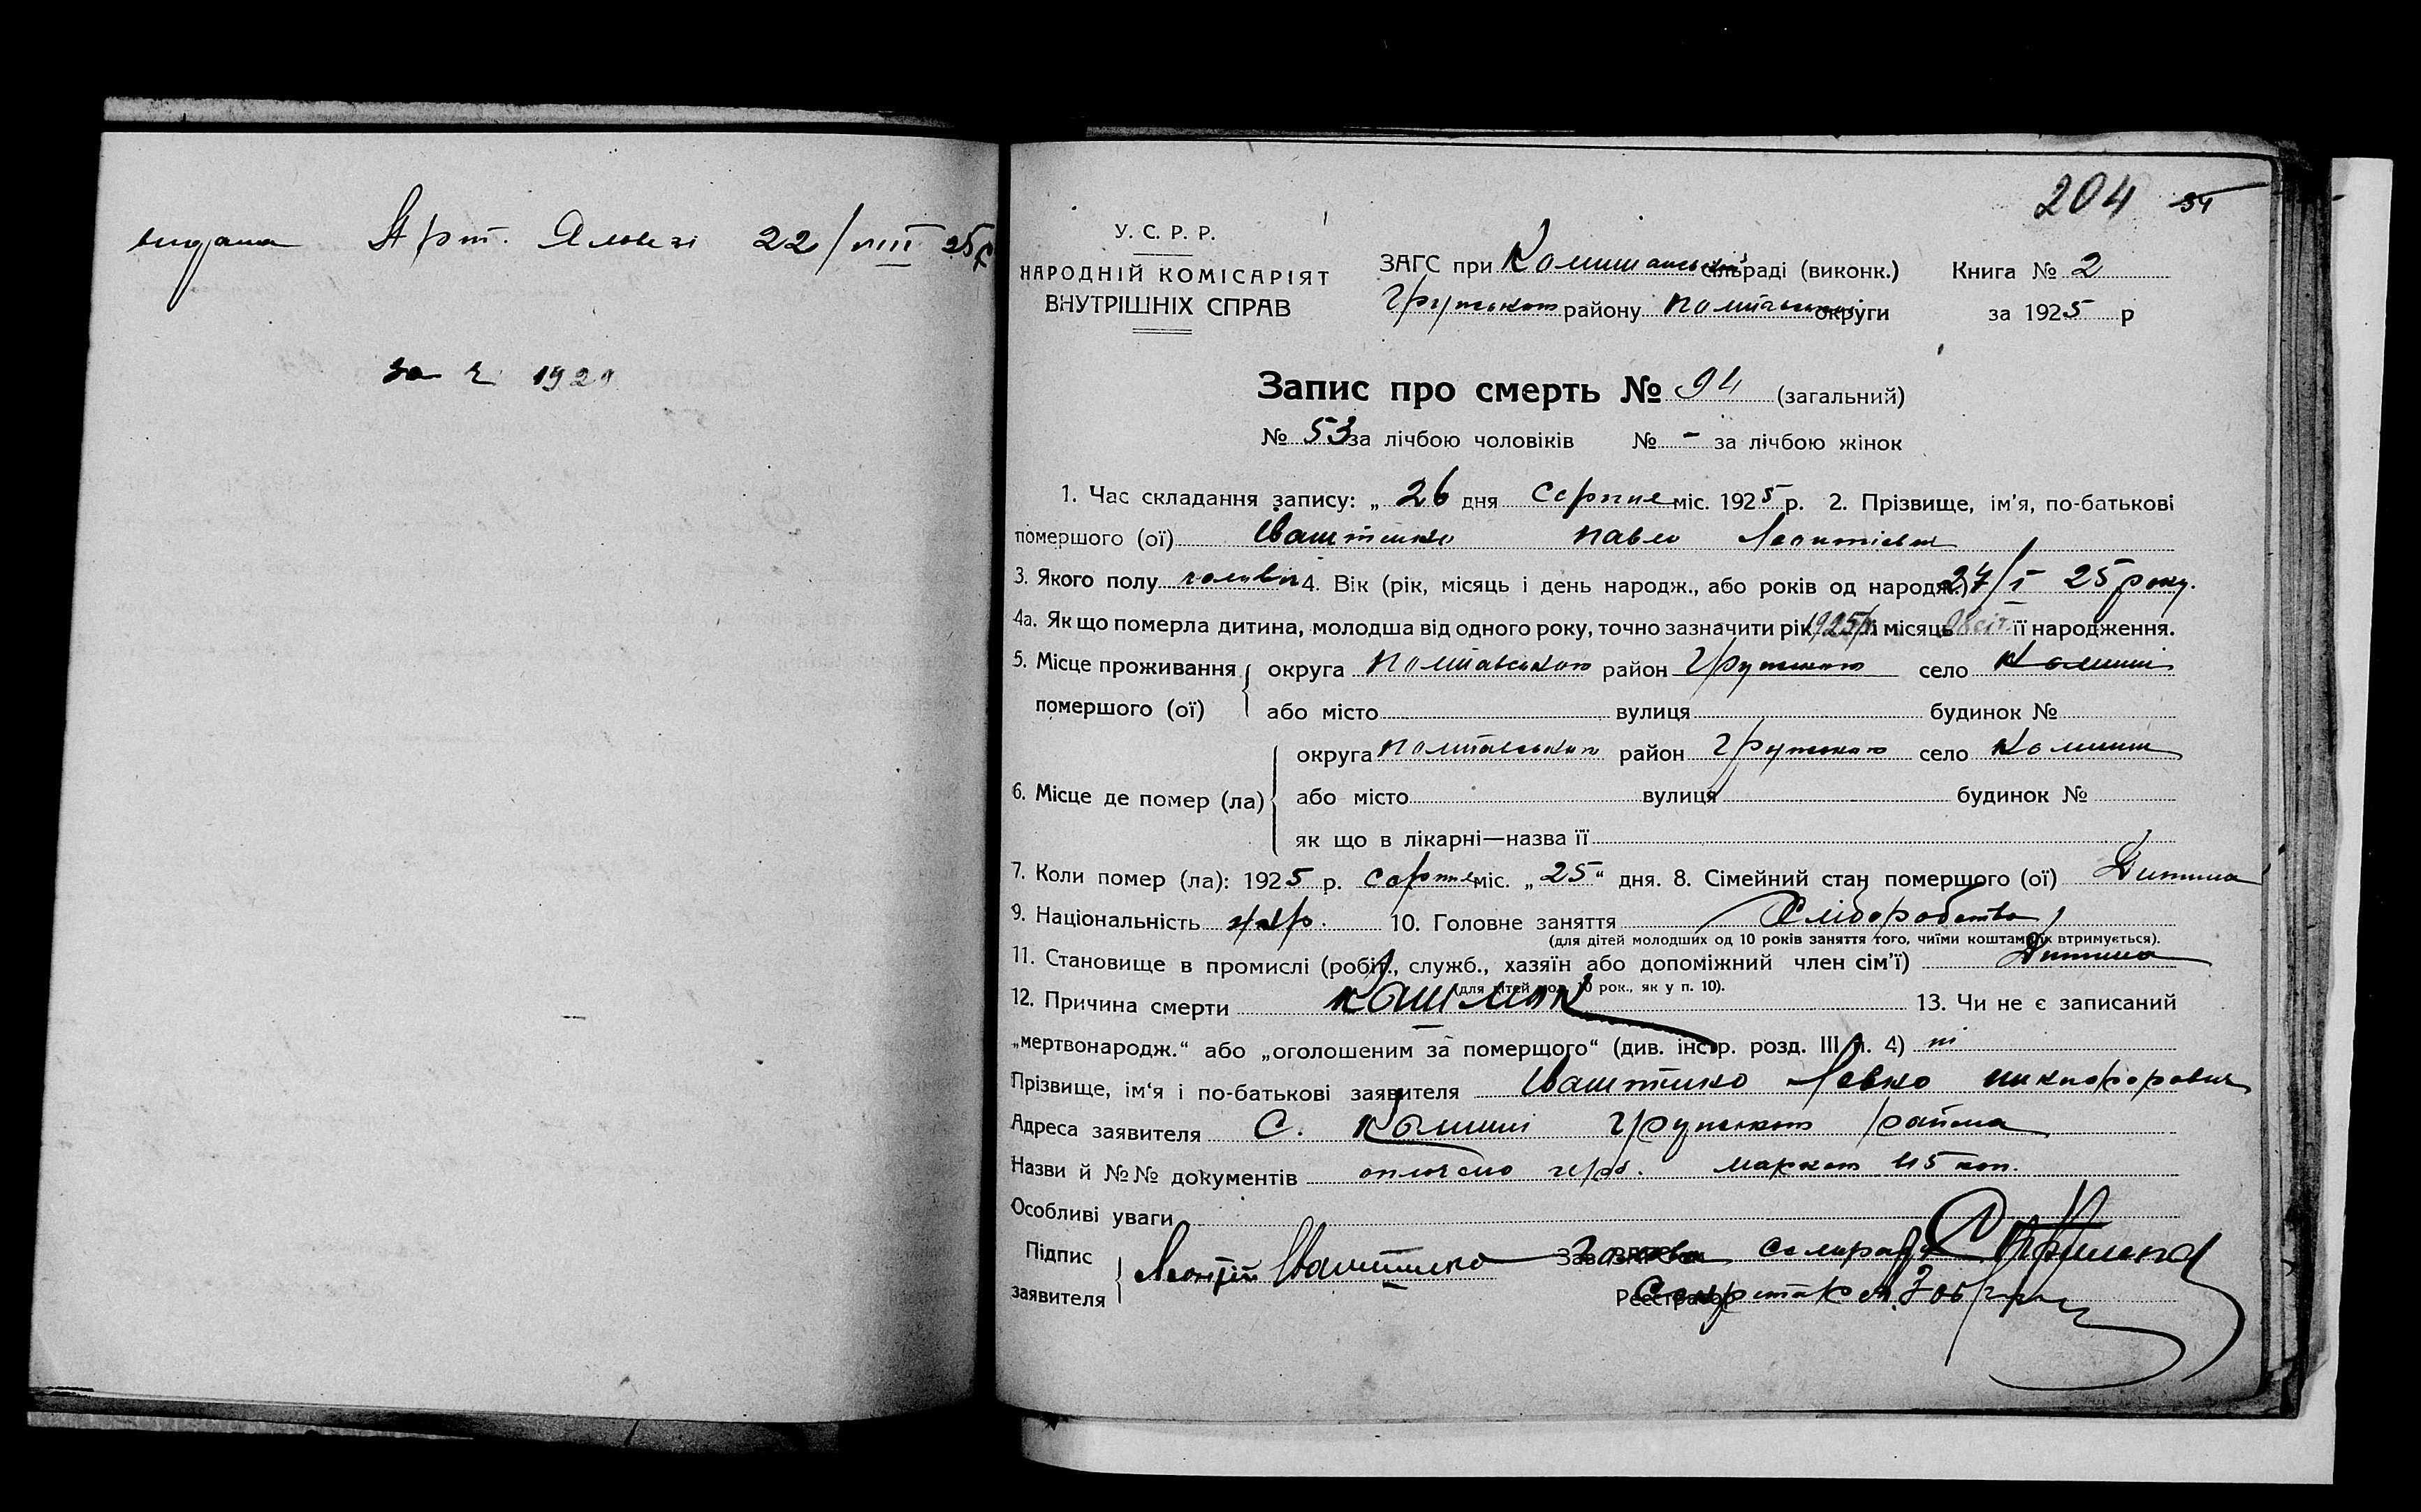 видана Арт. Яловзі 22/VIII 25 р
за 1921
204
У. С. Р. Р.
НАРОДНІЙ КОМІСАРІЯТ
ВНУТРІШНІХ СПРАВ
ЗАГС при Комишанській сільраді (виконк.) Книга № 2
Грунського району Полтавської округи за 1925 р
Запис про смерть № 94 (загальний)
№ 53 за лічбою чоловіків № - за лічбою жінок
1. Час складання запису: „ 26 дня Серпня міс. 1925 р. 2. Прізвище, ім'я, по-батькові
помершого (ої) Іваштенко Павло Леонтієвич
3. Якого полу 4. Вік (рік, місяць і день народж., або років од народж.) 27/I 25 року.
4а. Як що померла дитина, молодша від одного року, точно зазначити рік 1925 р. і місяць її народження.
5. Місце проживання округа Полтавського район Грунського село Комиші
помершого (ої) або місто вулиця будинок №
округа Полтавського район Грунського село Комиші
6. Місце де помер (ла) або місто вулиця будинок №
як що в лікарні—назва її
7. Коли помер (ла): 1925 р. серпня міс. „ 25 “ дня. 8. Сімейний стан помершого (ої) Дитина
9. Національність укр. 10. Головне заняття Хліборобство
(для дітей молодших од 10 років заняття того, чиїми коштами їх втримується).
11. Становище в промислі (робіт., служб., хазяїн або допоміжний член сім'ї) Дитина
(для дітей мол. 10 рок., як у п. 10).
12. Причина смерти кашлюк 13. Чи не є записаний
„мертвонародж.“ або „оголошеним за померщого“ (див. інстр. розд. III п. 4) ні
Прізвище, ім'я і по-батькові заявителя Іваштенко Левко Никифорович
Адреса заявителя С. Комиші Грунського района
Назви й №№ документів оплочено герб. маркою 45 коп.
Особливі уваги
Підпис Леонтій Іваштенко Зав. ЗАГСом Голова сельради
заявителя Реєстратор Секретар